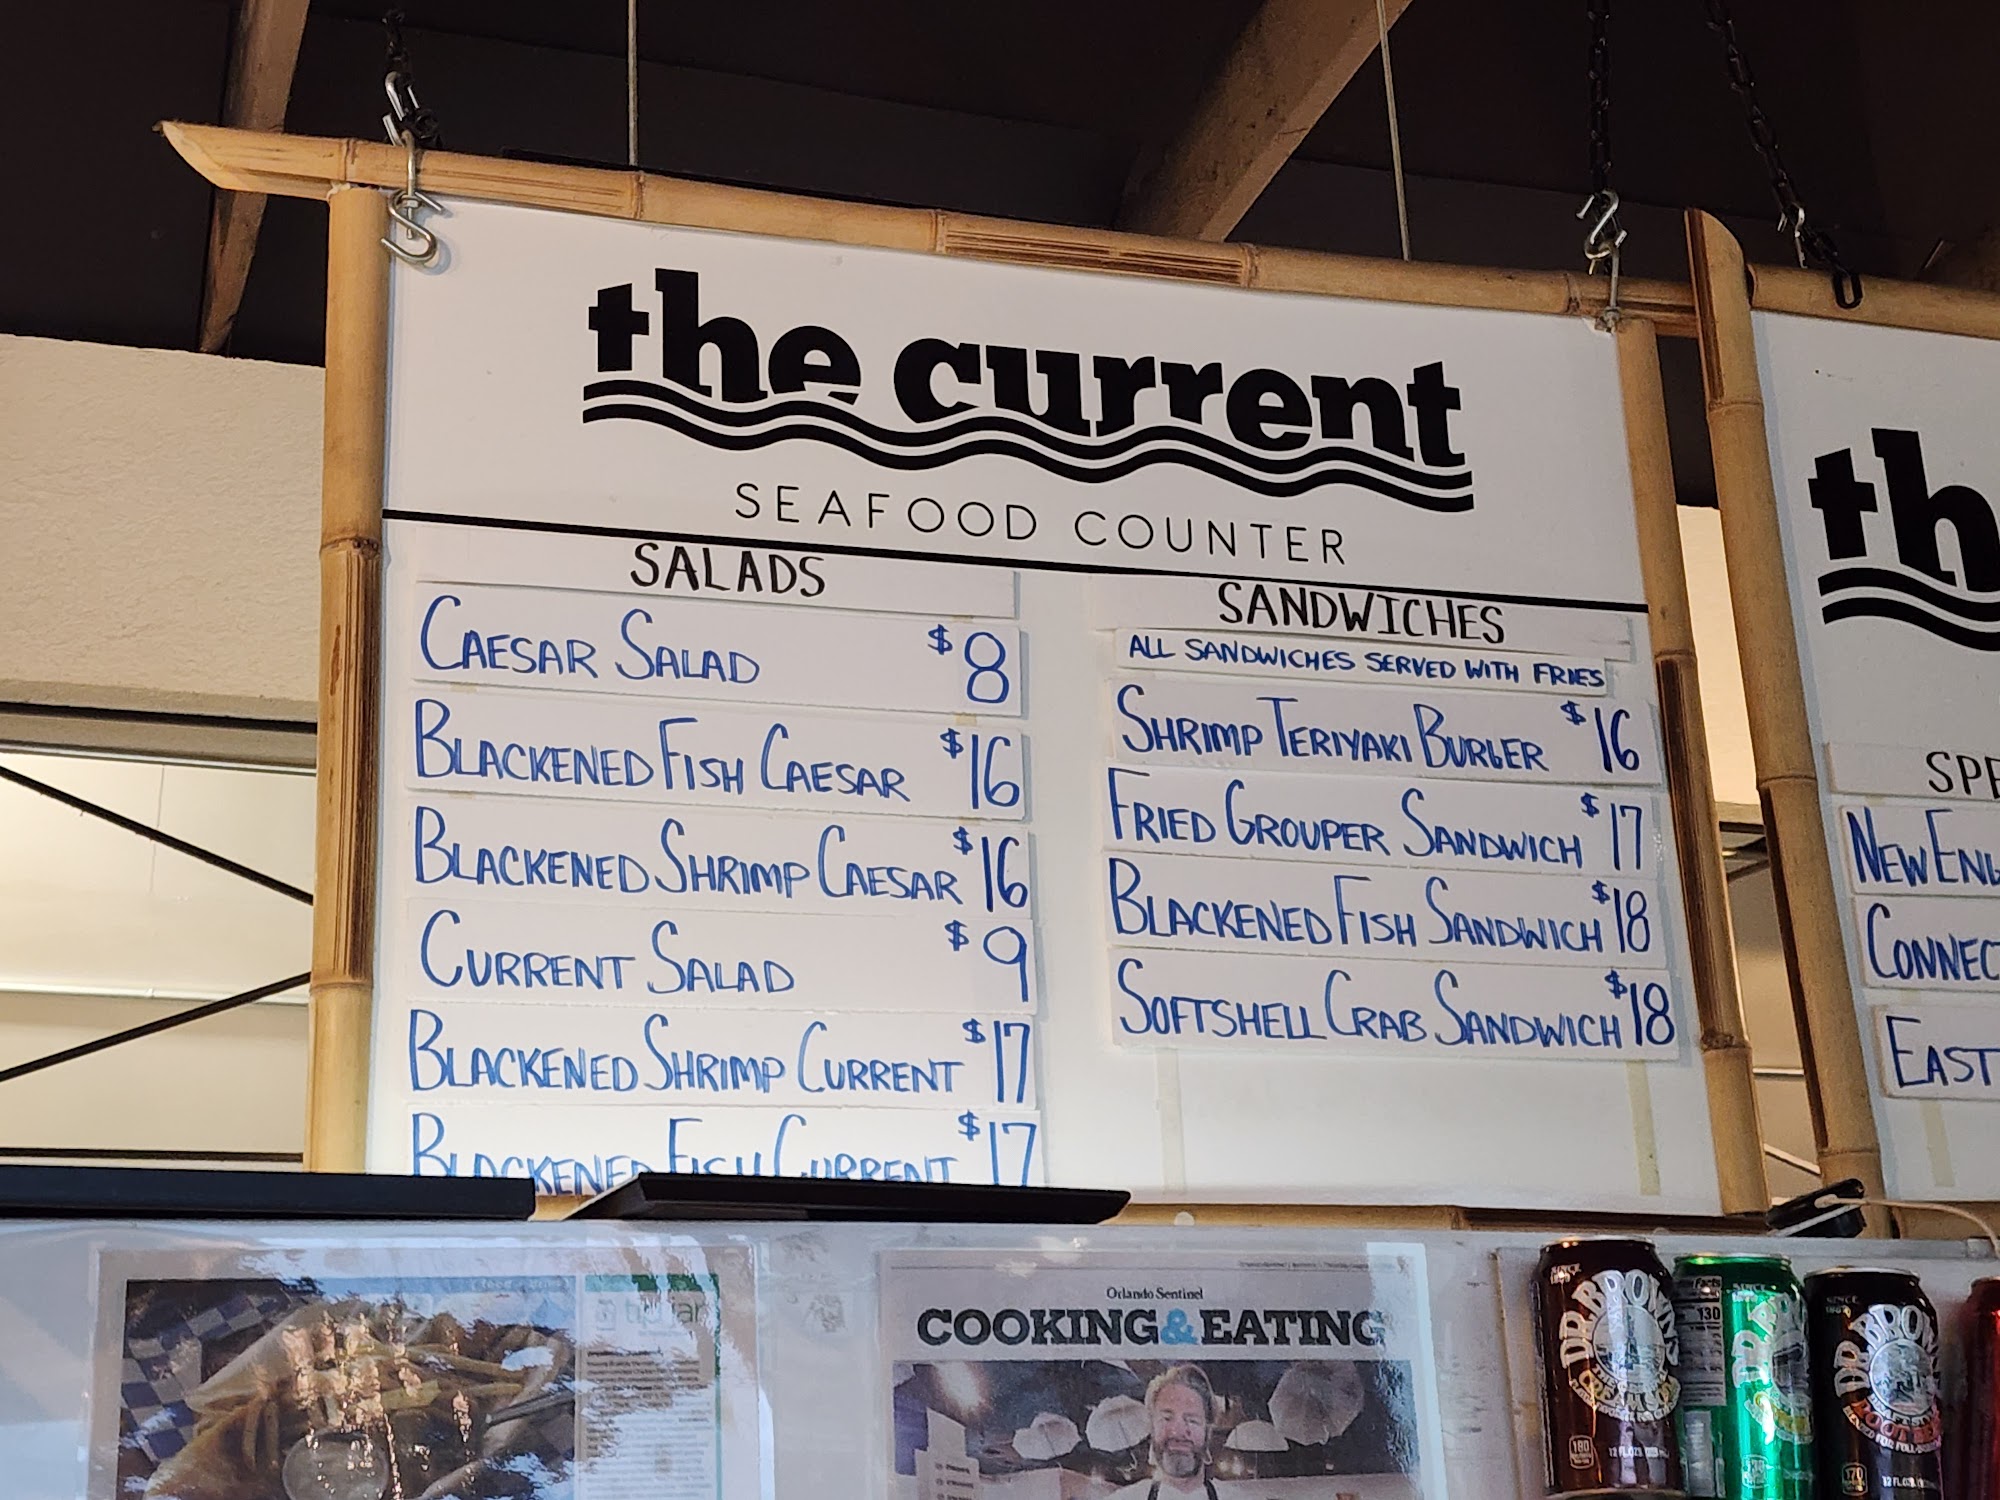 the current
SEAFOOD COUNTER
SALADS
CAESAR SALAD $8
BLACKENED FISH CAESAR $16
BLACKENED SHRIMP CAESAR $16
CURRENT SALAD $9
BLACKENED SHRIMP CURRENT $17
BLACKENED FISH CURRENT $17
SANDWICHES
ALL SANDWICHES SERVED WITH FRIES
SHRIMP TERIYAKI BURGER $16
FRIED GROUPER SANDWICH $17
BLACKENED FISH SANDWICH $18
SOFTSHELL CRAB SANDWICH $18
th
SPE
NEW ENG
CONNEC
EAST
Orlando Sentinel
COOKING & EATING
SINCE
DR. BROWN'S
180
12 FL. OZ.
130
DR. B
SINCE
DR. BROW
170
12 FL. OZ.